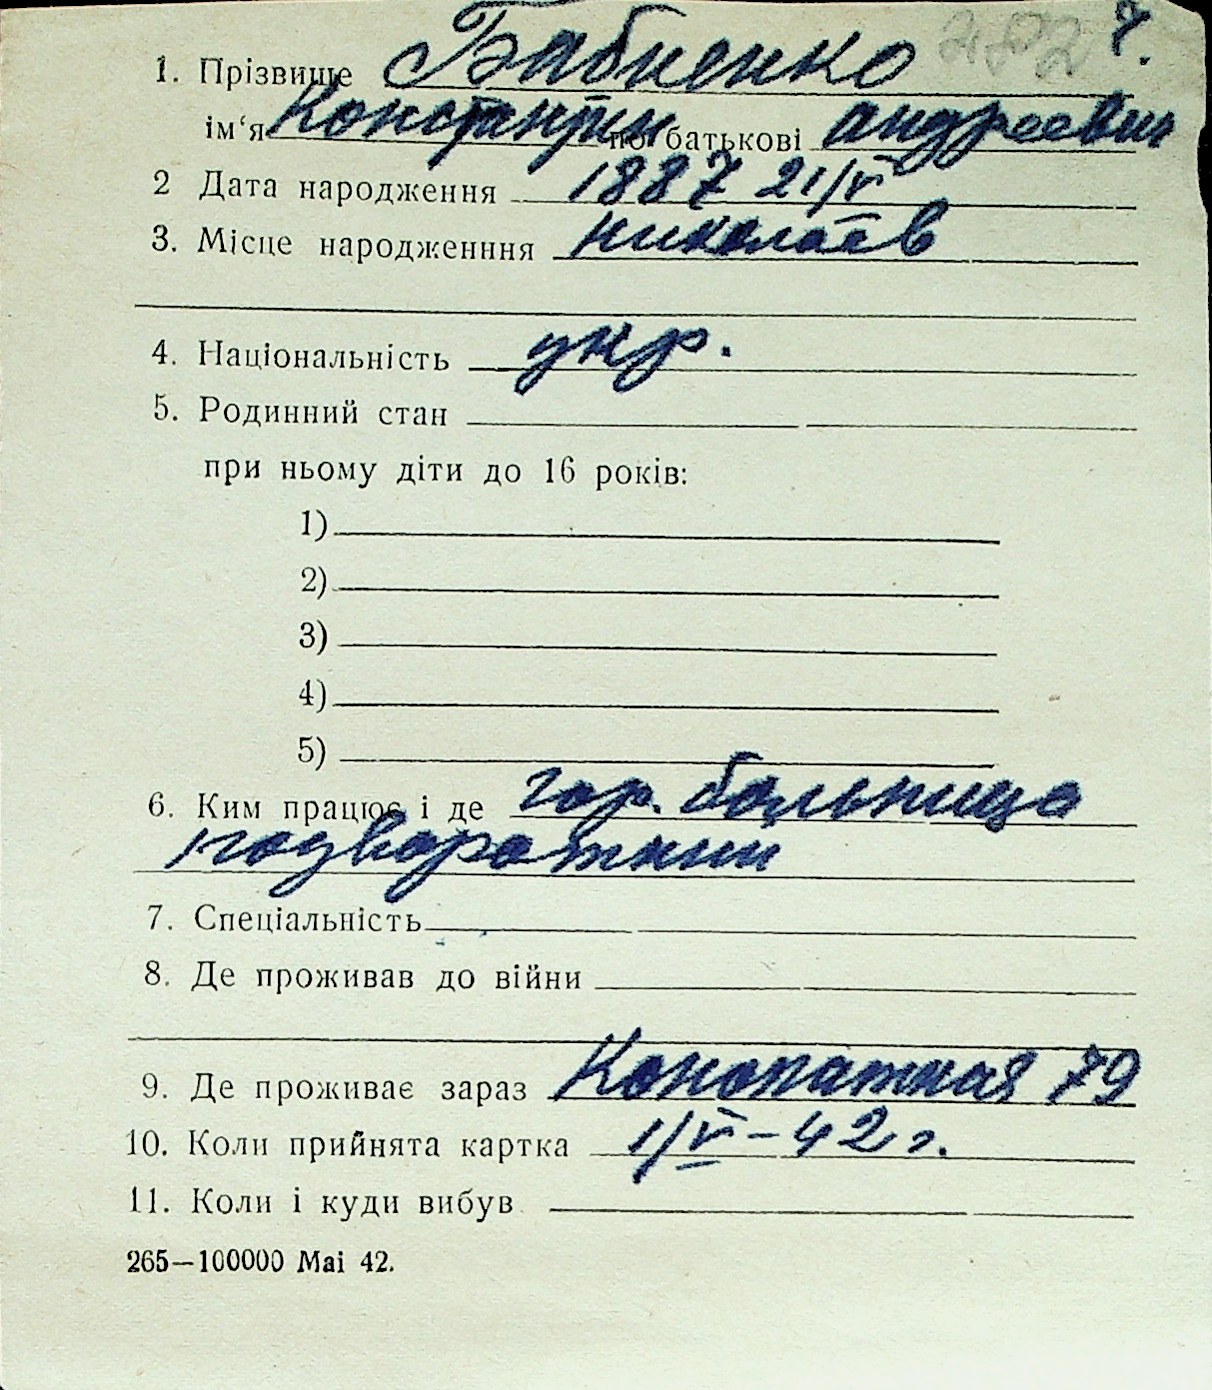 482 7.
1. Прізвище Бабненко
ім‘я Константин по батькові андреевич
2 Дата народження 1887 21/V
3. Місце народженння николаев
4. Національність укр.
5. Родинний стан
при ньому діти до 16 років:
1)
2)
3)
4)
5)
6. Ким працює і де гор. больница
7. Спеціальність
8. Де проживав до війни
9. Де проживає зараз Конопатная 79
10. Коли прийнята картка 1/V – 42 г.
11. Коли і куди вибув
265—100000 Mai 42.